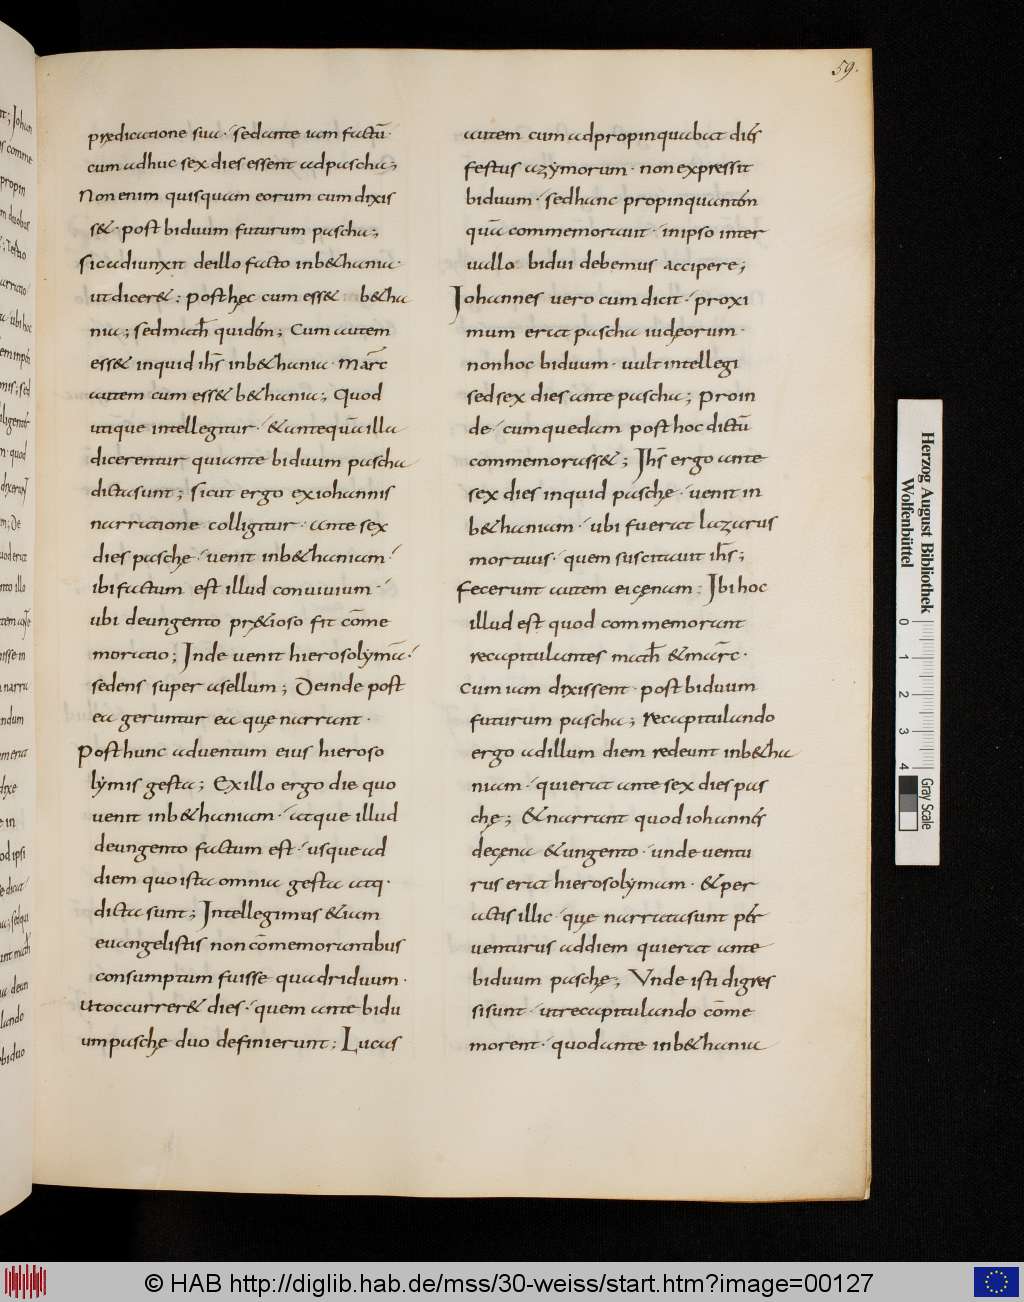 59.
prędicatione sua · sed ante iam factū ·
cum adhuc sex dies essent ad pascha;
Non enim quisquam eorum cum dixis
s& · post biduum futurum pascha;
sic adiunxit deillo facto in b&hania ·
ut dicer&: post hęc cum ess& b&ha
nia; sed math̄ quidē; Cum autem
ess& inquid ih̄s in b&hania · marc̄
autem cum ess& b&hania; Quod
utique intellegitur · & antequā illa
dicerentur qui ante biduum pascha
dicta sunt; sicut ergo ex iohannis
narratione colligitur · ante sex
dies paschę · uenit in b&haniam ·
ibi factum est illud conuiuium ·
ubi deungento pr&ioso fit cōme
moratio; Inde uenit hierosolymā ·
sedens super asellum; Deinde post
ea geruntur ea quę narrant ·
Post hunc aduentum eius hieroso
lymis gesta; Ex illo ergo die quo
uenit in b&haniam · atque illud
deungento factum est · usque ad
diem quo ista omnia gesta atq ·
dicta sunt; Intellegimus &iam
euangelistis non cōmemorantibus
consumptum fuisse quadriduum ·
ut occurrer& dies · quem ante bidu
um paschę duo definierunt; Lucas
autem cum adpropinquabat diēs
festus azymorum · non expressit
biduum · sed hanc propinquantēm
quā commemorauit · in ipso inter
uallo bidui debemus accipere;
Iohannes uero cum dicit · proxi
mum erat pascha iudęorum ·
non hoc biduum · uult intellegi
sed sex dies ante pascha; proin
de · cum quedam post hoc dictū
commemorass&; Ih̄s ergo ante
sex dies inquid paschę · uenit in
b&haniam · ubi fuerat lazarus
mortuus · quem suscitauit ih̄s;
fecerunt autem ei cęnam: Ibi hoc
illud est quod commemorant
recapitulantes math̄ & mārc ·
cum iam dixissent · post biduum
futurum pascha; recapitulando
ergo ad illum diem redeunt in b&ha
niam · qui erat ante sex dies pas
chę; & narrant quod iohannes
de cęna & ungento · unde uentu
rus erat hierosolymam · & per
actis illic · quę narrata sunt per
uenturus ad diem qui erat ante
biduum paschę; Unde isti digres
si sunt · ut recapitulando cōme
morent · quod ante in b&hania
Herzog August Bibliothek
Wolfenbüttel
0 1 2 3 4
Gray Scale
© HAB http://diglib.hab.de/mss/30-weiss/start.htm?image=00127